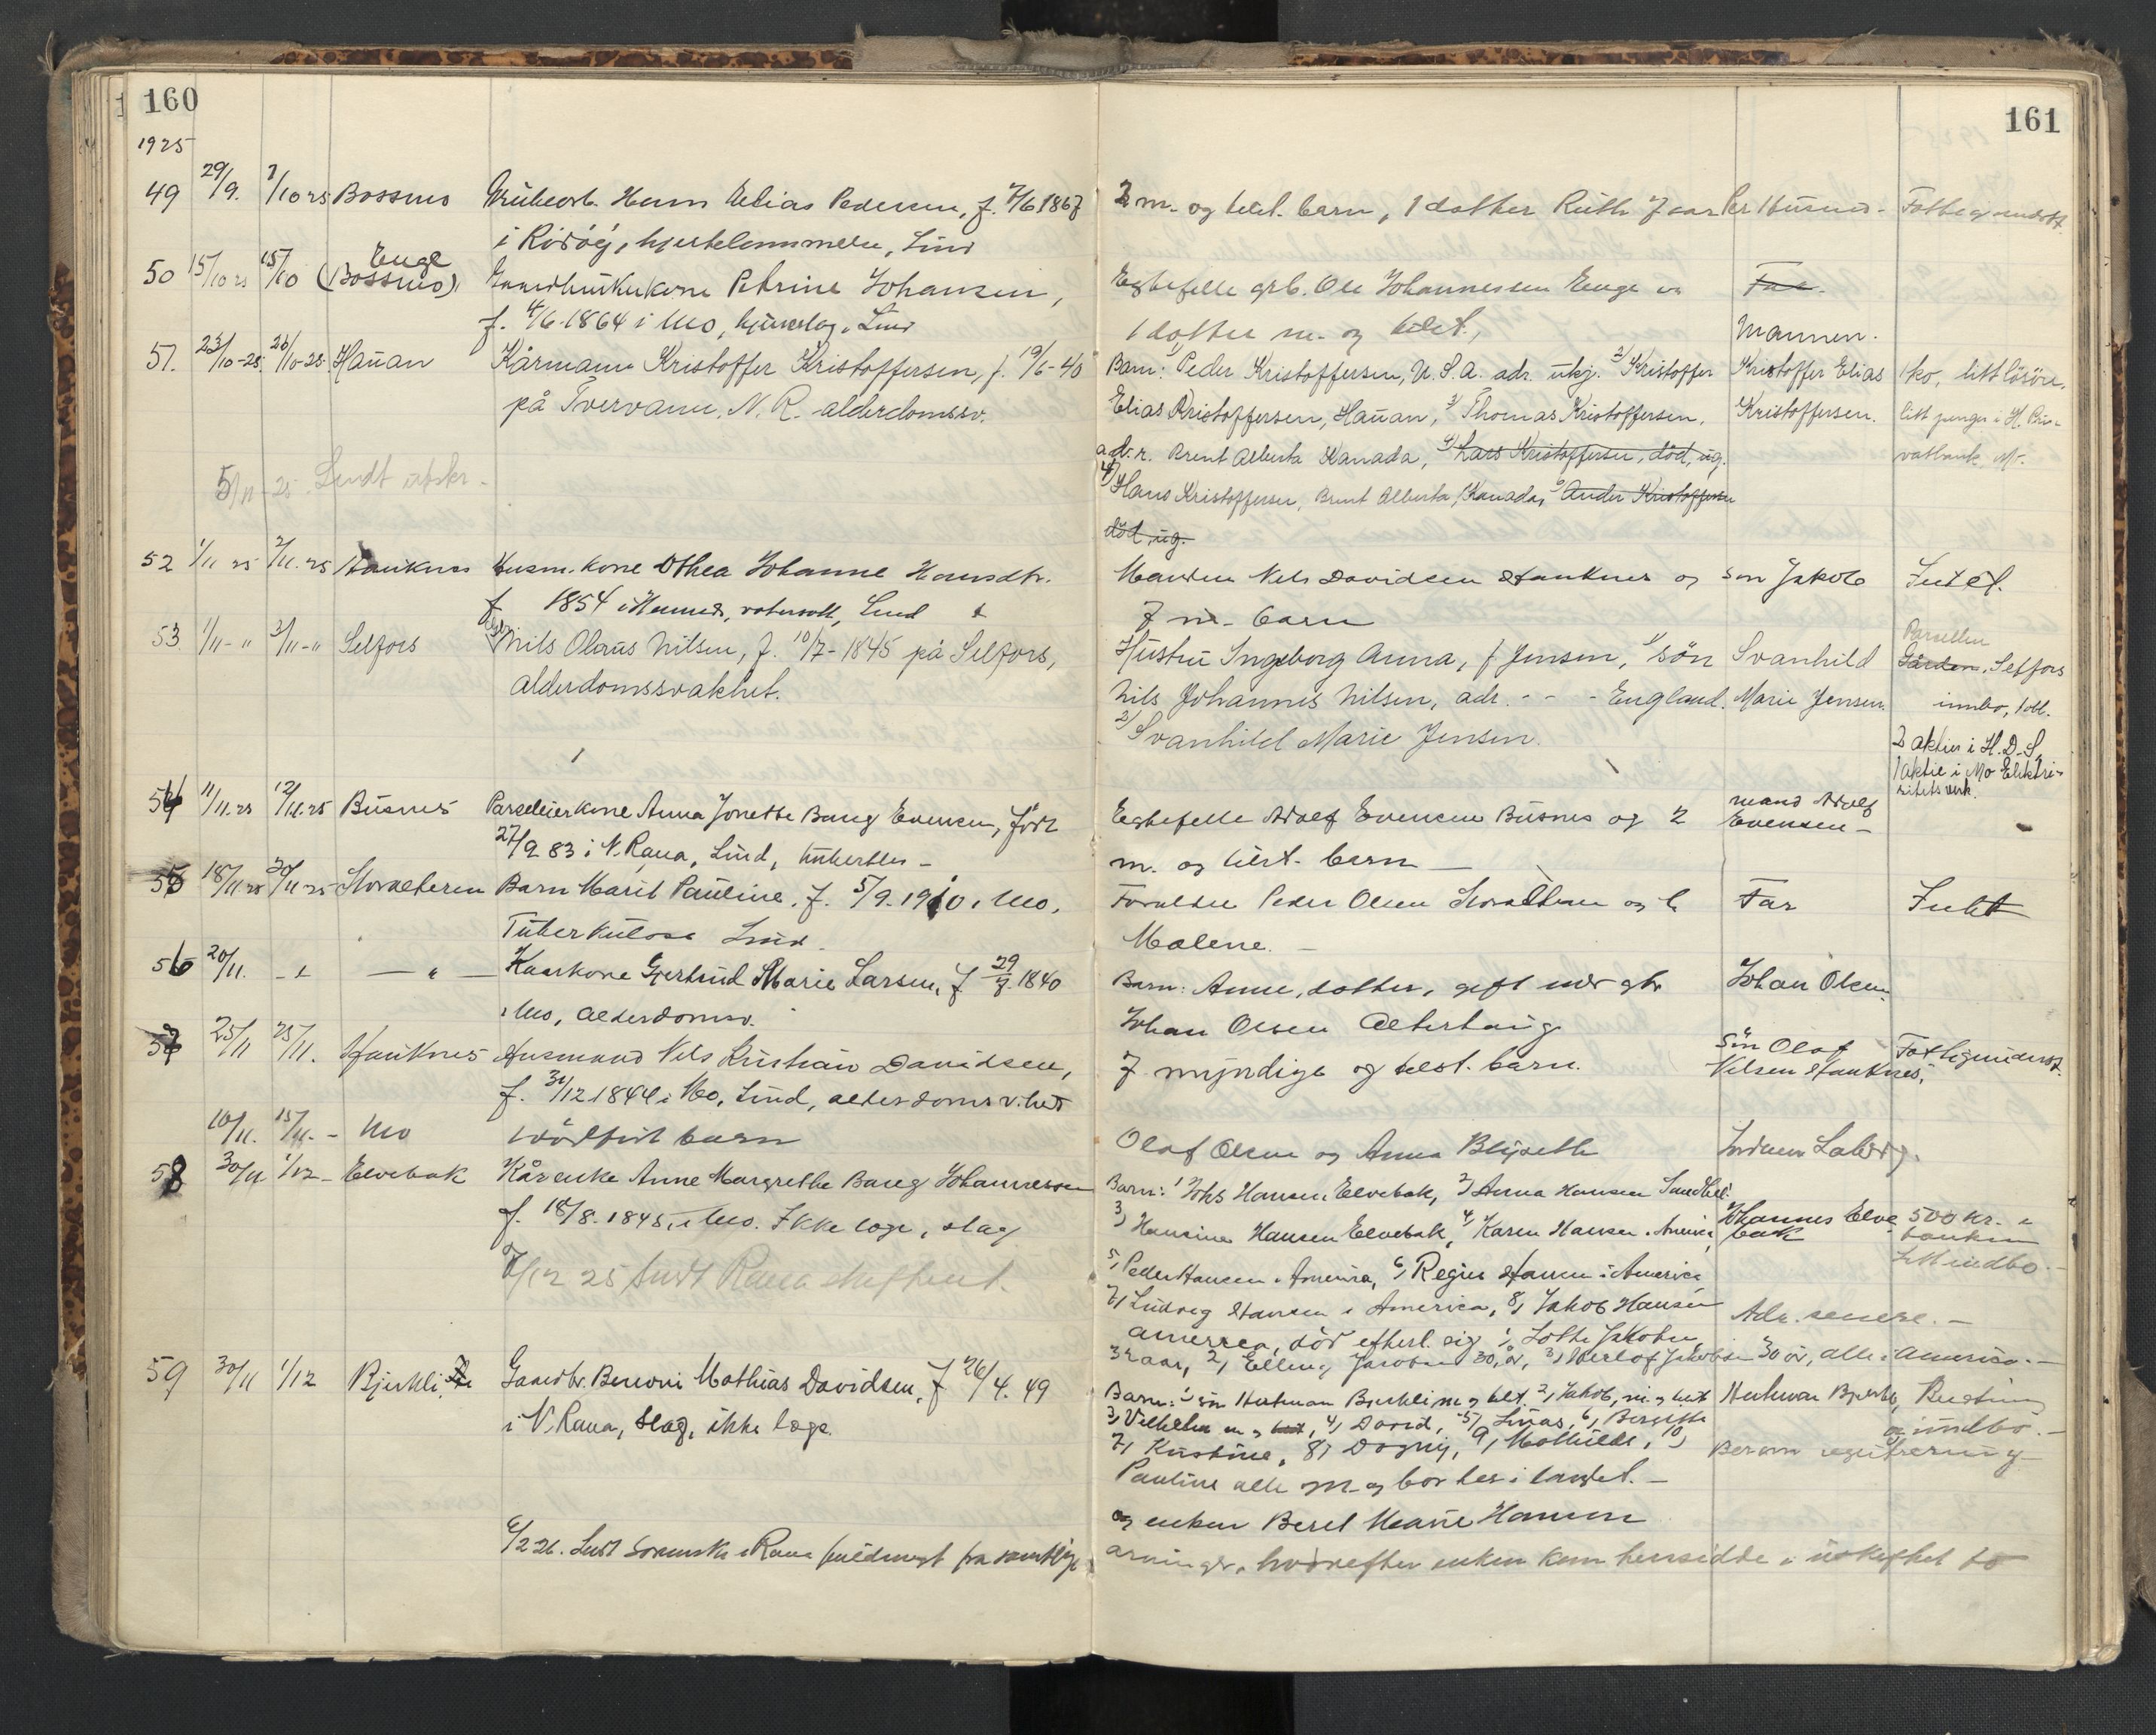 160
1925
49 29/9. 1/10 25 Bossmo Grubearb. Hans Elias Pedersen, f. 7/6 1867
i Rödöy, hjertelammelse, Lind
50 15/10 25 15/10 Enge (Bossmo) Gaardbrukerkone Petrine Johansen,
f. 4/6-1864 i Mo, Lind
51. 23/10-25. 26/10-25 Hauan Kårmann Kristoffer Kristoffersen, f. 19/6-40
på Tvervann. N. R. alderdomssv.
5/11-25. Sendt utskr.
52 1/11 25 2/11. 25 Hauknes Husm. kone Othea Johanne Hansdtr.
f 1854 i Hemnes, Lind
53. 1/11-" 3/11-" Selfors Nils Olaus Nilsen, f. 10/7-1845 på Selfors,
alderdomssvakhet.
54 11/11. 25 12/11. 25 Busnes Parseleierkone Anna Jonette Bang Evensen, född
27/9 83 i N. Rana, Lind, tuberkler -
55 18/11. 25 20/11-25 Storalteren Barn Marit Pauline. f. 5/9. 1910 i Mo,
Tuberkulose Lind.
56 20/11. - " - " - Kaarkone Gjertrud Marie Larsen, f 29/9. 1840
i Mo, alderdomsv.
57 25/11 25/11. Hauknes Husmand Nels Kristian Davidsen,
f. 31/12 1844 i Mo, Lind, alderdomsv.het
10/11. 15/11. - Mo 1 dödfödt barn
58 30/11 1/12 - Elvebak Kårenke Anne Margrethe Bang Johannessen
f. 18/8. 1845, i Mo. Ikke læge, slag
/12 25 Sendt Rana skifteret.
59 30/11 1/12 Bjerkli Gaardbr. Benoni Mathias Davidsen, f 26/4. 49
i N. Rana, slag, ikke læge.
6/2 26. Sendt Sorensk. i Rana fuldmagt fra samtlige
161
2 m. og tilst. barn, 1 datter Ruth 7 aar Per Husmo - Fattigunderst.
Egtefelle grb. Ole Johannessen Enge og Far.
1 datter m. og tilst., Mannen.
Barn: 1) Peder Kristoffersen, U. S. A. adr. ukj. 2) Kristoffer Kristoffer Elias 1 ko, litt lösöre,
Elias Kristoffersen, Hauan, 3) Thomas Kristoffersen, Kristoffersen. litt penger i H. Pri-
adr. Brent Alberta Kanada, 4) Lars Kristoffersen, död, ug. vatbank, Mo.
4) Hans Kristoffersen, Brent Alberta, Kanada, 5) Ander Kristoffersen
död, ug.
Manden Nels Davidsen Hauknes og sön Jakob Intet.
7 m. barn
Hustru Ingeborg Anna, f Jensen, 1) sön Svanhild Parsellen Gården, Selfors
Nils Johannes Nilsen, adr. - - - England. Marie Jensen. innbo, 1 obl.
2) Svanhild Marie Jensen. 2 aktier i H. D. S.
1 aktie i Mo Elektri-
sitetsverk.
Egtefelle Adolf Evensen Busnes og 2 mand Adolf Evensen -
m. og tilst. barn -
Foreldre Peder Olsen Storalteren og h. Far Intet
Malene. -
Barn: Anne, datter, gift med gbr Johan Olsen
Johan Olsen Alterhaug
7 myndige og tilst. barn. Sön Olaf Nelsen Hauknes, Fattigunderst.
Olaf Olsen og Anna Blyseth Jordmor Laberg.
Barn: 1 Johs Hansen Elvebak, 2) Anna Hansen Sandhei.
3) Hansine Hansen Elvebak, 4) Karen Hansen i America, Johannes Elvebak 500 kr. i banken
5, Peder Hansen i America, 6, Regine Hansen i America Litt indbo. -
7, Ludvig Hansen i America, 8, Jakob Hansen Adr. senere. -
America, död efterl. sig 1, Lotte Jakobsen
32 aar, 2, Elling Jacobsen 30 år, 3, Jakobsen 30 år, alle i America. -
Barn: 1 sön Herleman Bjerkli m og tilst. 2, Jakob, m og tilst Bjerkli, Buskap
3, Vilhelm m og tilst, 4, David, 5, Linas, 6, Bergitte og indbo. -
7, Kristine, 8, Dagny, 9, Mathilde, 10, Beror registrering
Pauline alle m og bor her i landet. -
og enken Beret Marie Hansen
arvinger, hvorefter enken kan hensidde i uskiftet bo